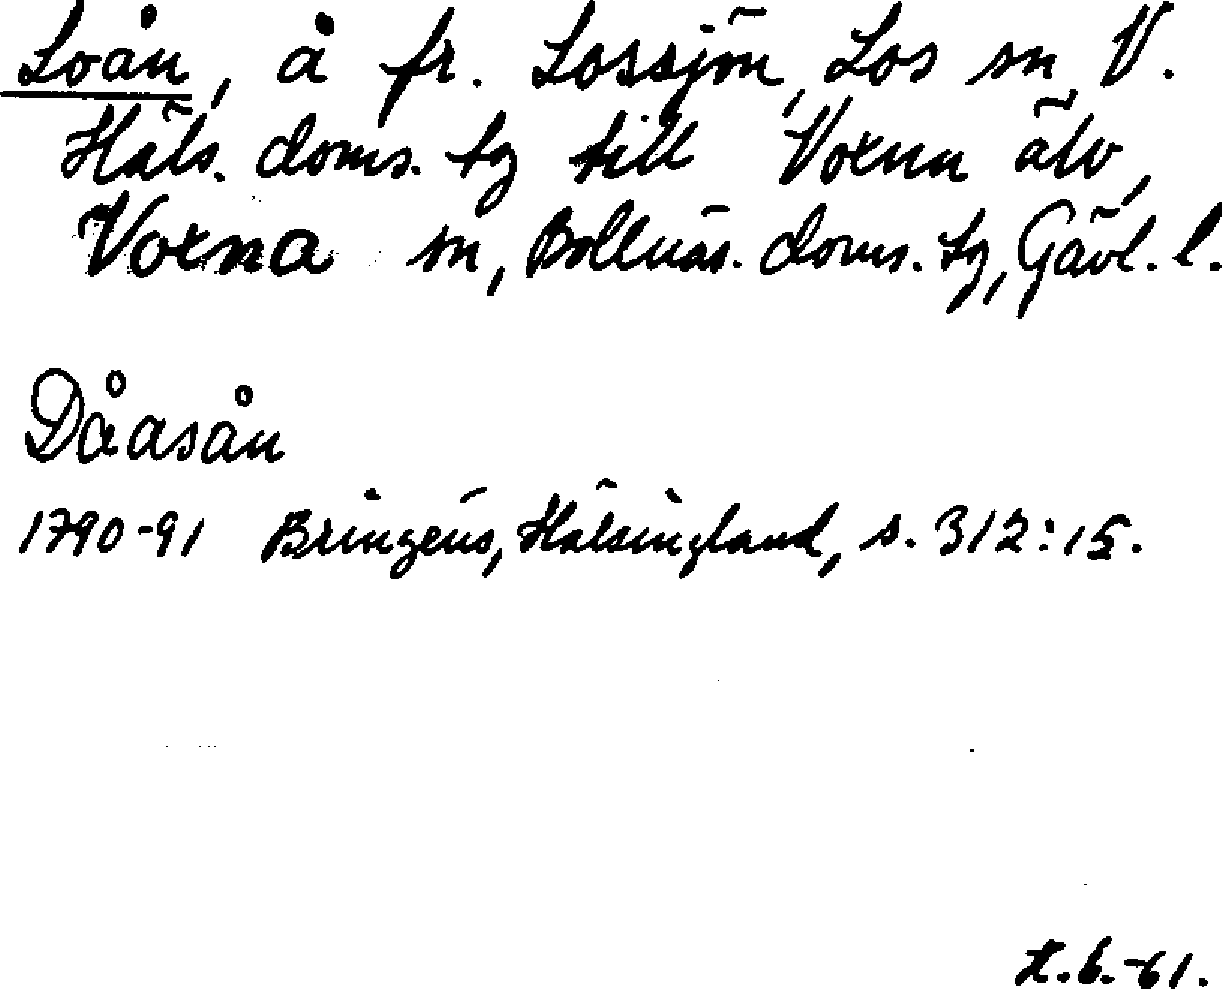 Loån, å fr. Lossjön, Los sn, V.
Häls. doms. tg till Voxna älv,
Voxna sn, Bollnäs. doms. tg, Gävl. l.
Dåasån
1790-91 Bringéus, Hälsingland, s. 312:15.
H.b.-61.